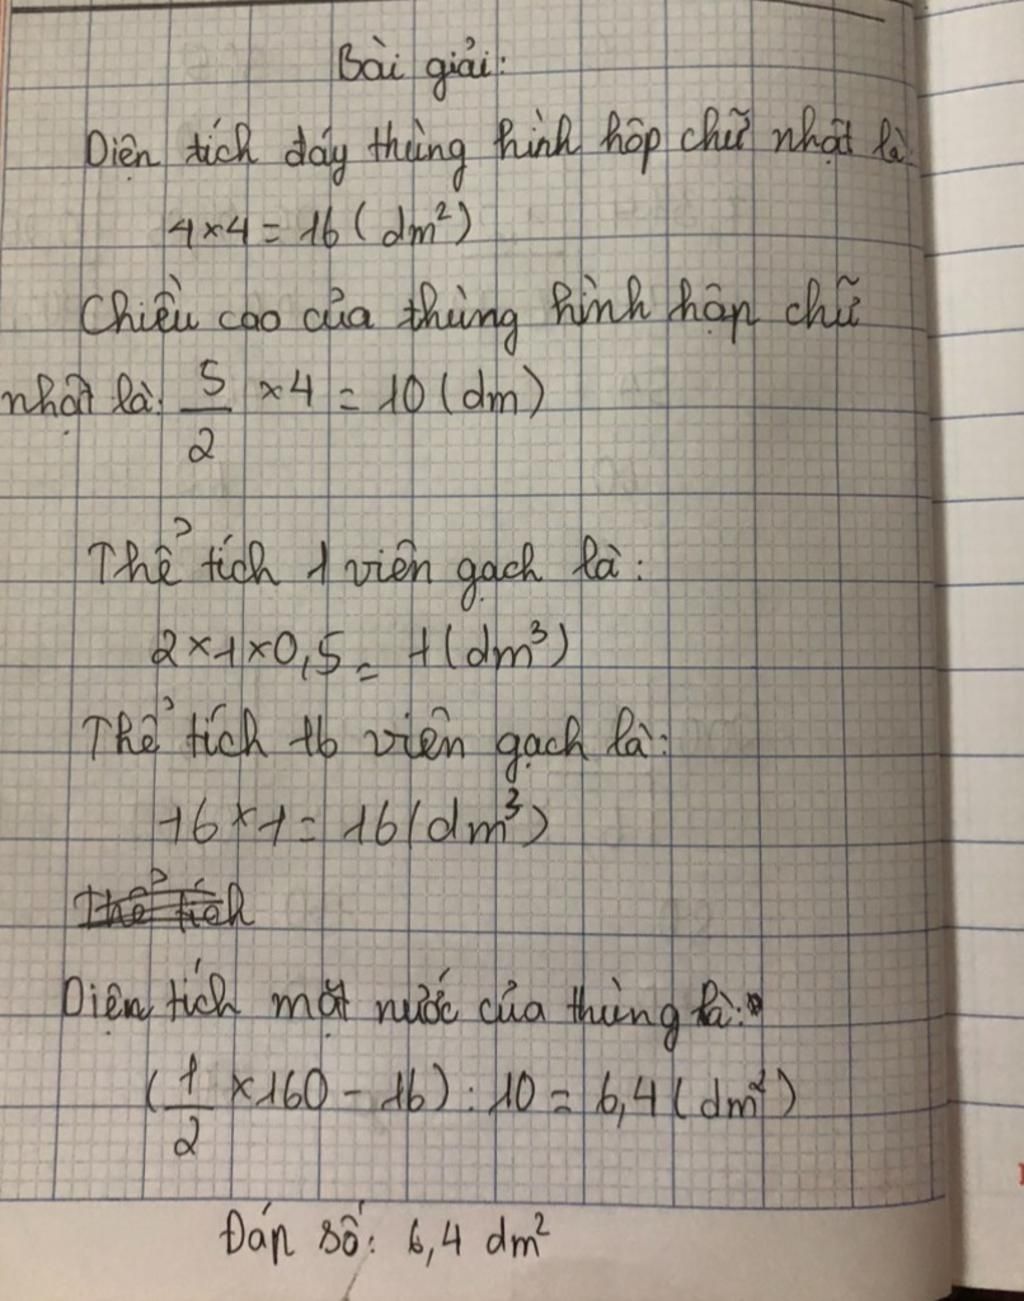 Bài giải:
Diện tích đáy thùng hình hộp chữ nhật là
4 x 4 = 16 ( dm²)
Chiều cao của thùng hình hộp chữ
nhật là: 5/2 x 4 = 10 (dm)
Thể tích 1 viên gạch là:
2 x 1 x 0,5 = 1 (dm³)
Thể tích 16 viên gạch là:
16 x 1 = 16 (dm³)
Thể tích
Diện tích mặt nước của thùng là:
(1/2 x 160 - 16) : 10 = 6,4 (dm²)
Đáp số: 6,4 dm²